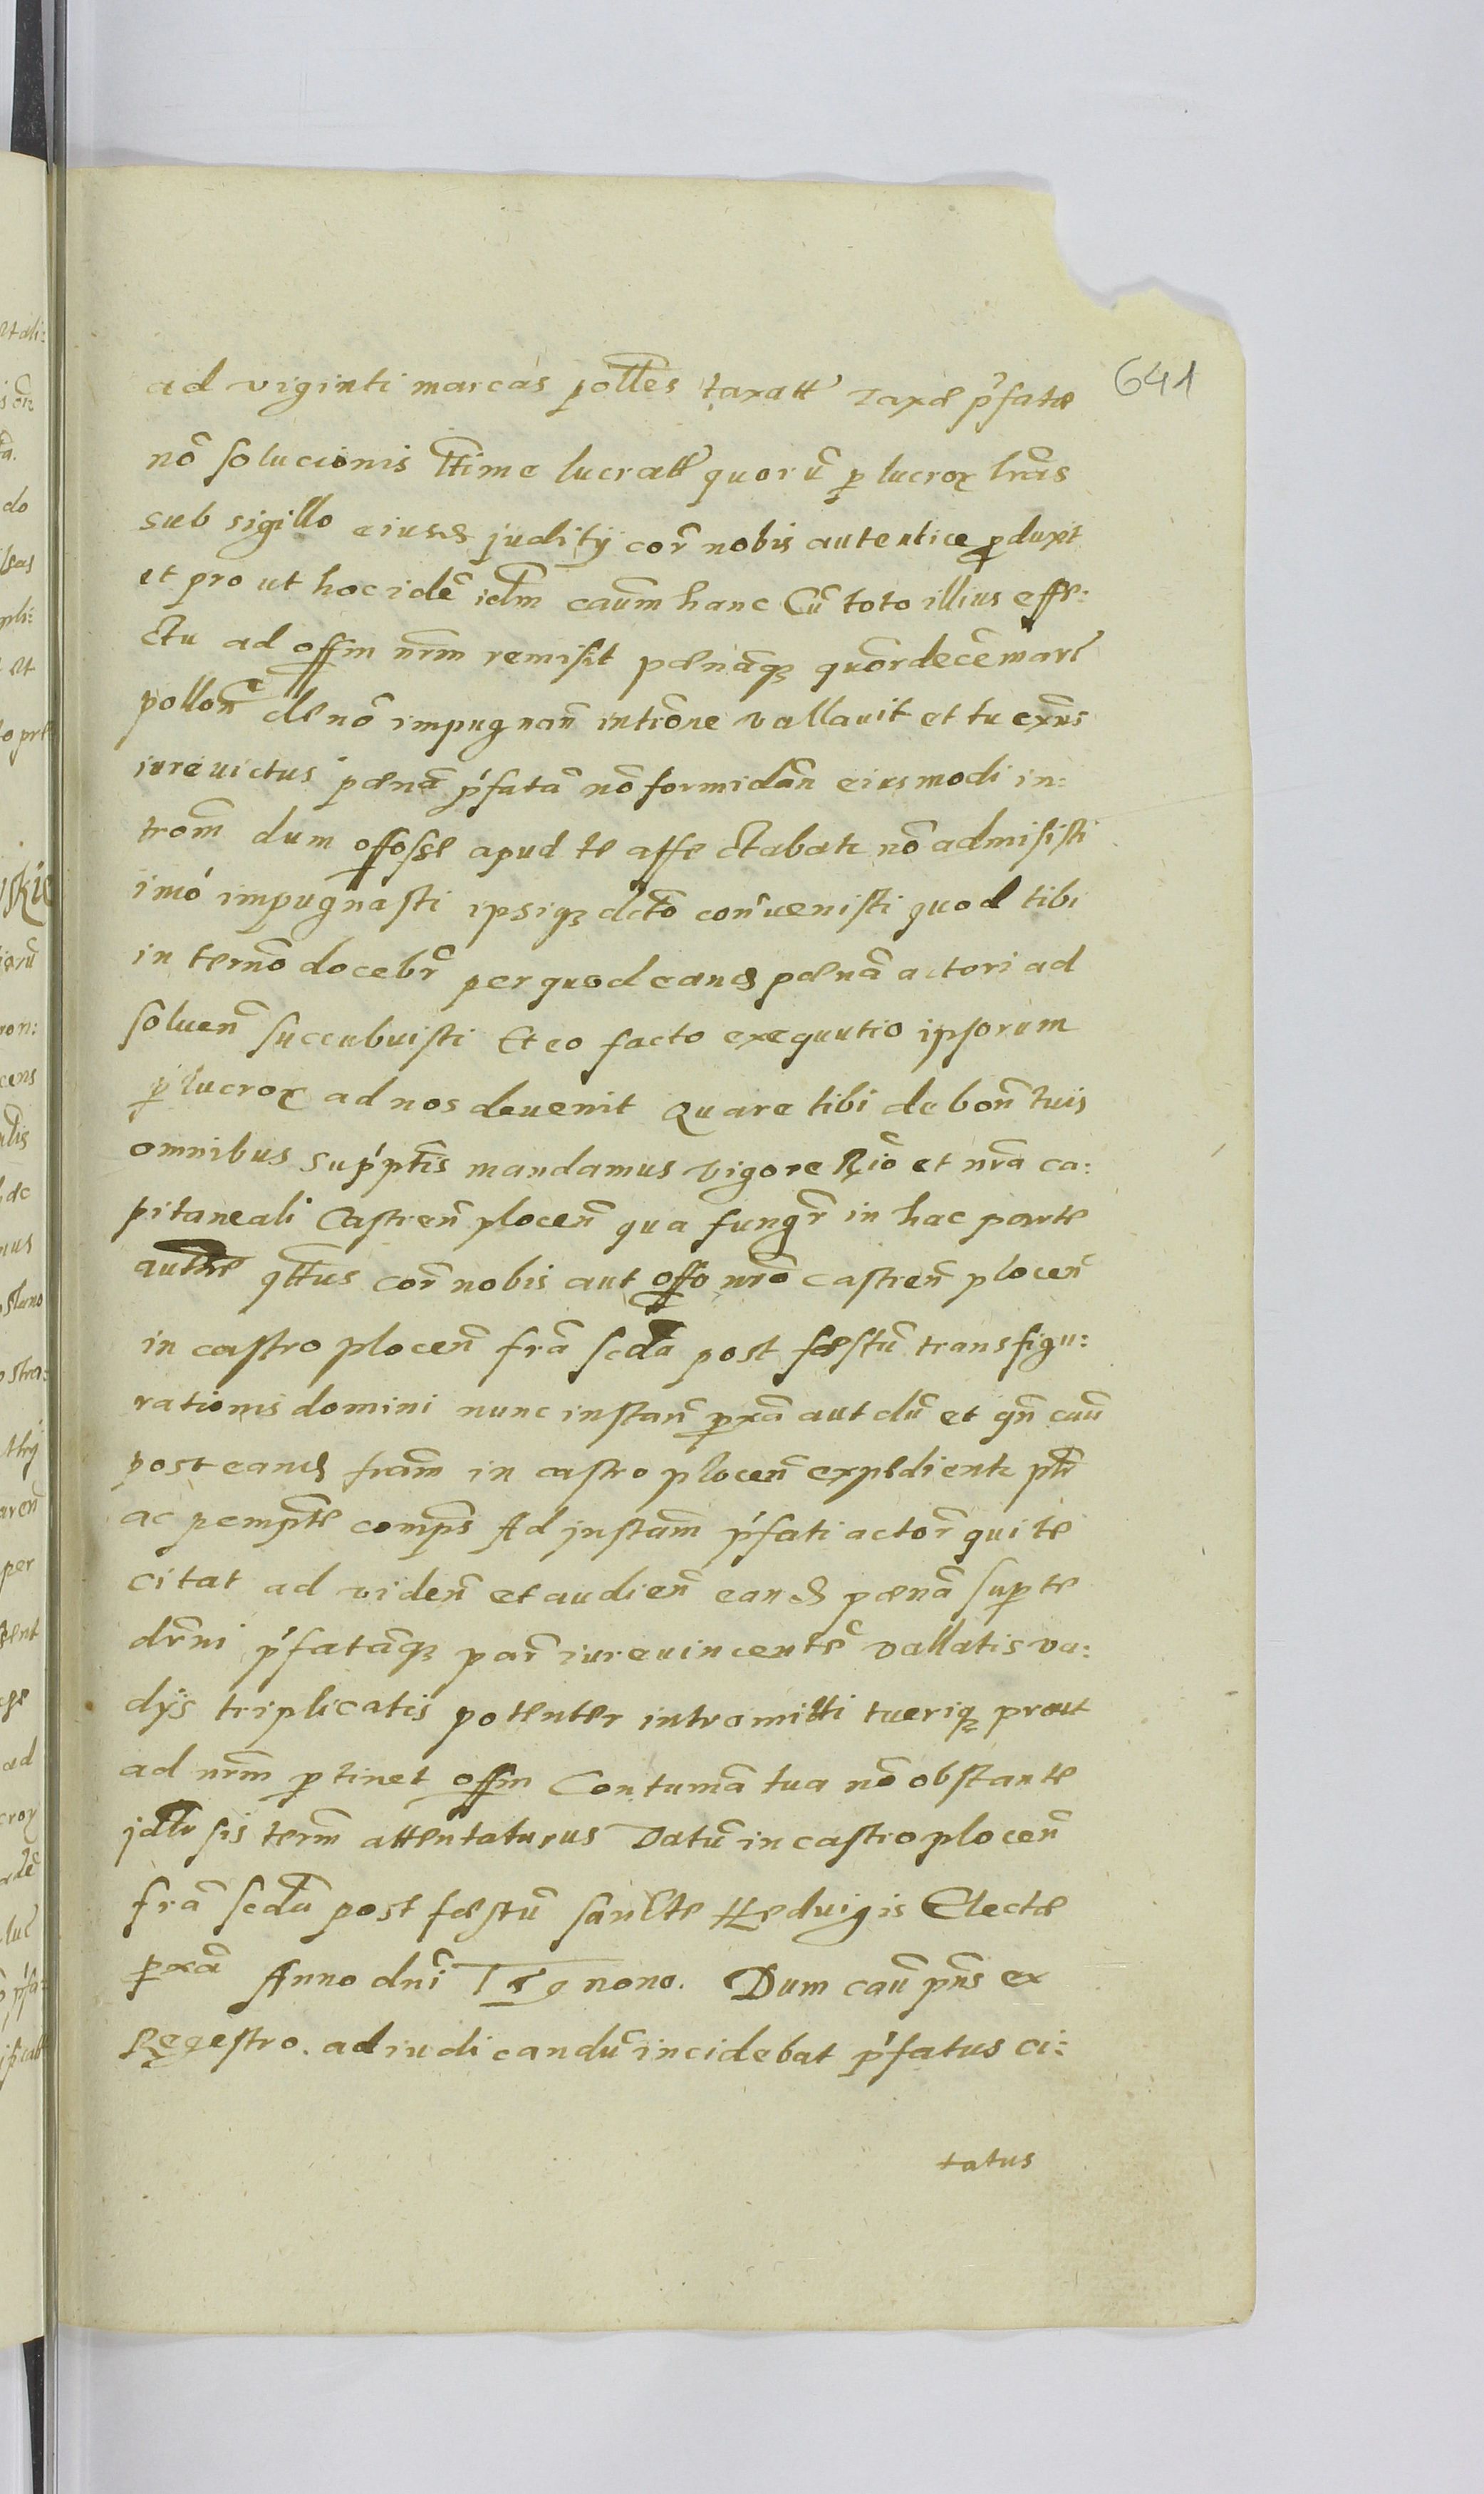 641
ad viginti marcas pollles taxatt Taxæ p'fatæ
nō solucionis ltime lucratt quorū p lucroꝝ lrās
sub sigillo eiusd judity cor̄ nobis autentice ꝓduxit
et pro ut hoc idē idm caūm hanc Cū toto illius effe:
ctu ad offm nrm remisit pœnāqꝫ quordecē marc̄
pollon̄ de nō impugnan̄ introne vallauit et tu exn̄s
iureuictus pœnā p'fatā nō formidān eiusmodi in:
trom̄ dum offosse apud te affectabatr nō admisisti
imó impugnasti ipsiqꝫ dcto conuenisti quod tibi
in termō docebr̄ per quod eand pœnā actori ad
soluen̄ succubuisti Et eo facto exequutio ipsorum
p lucroꝝ ad nos deuenit Quare tibi de bon̄ tuis
omnibus sup'ptis mandamus vigore Riō et nrā ca:
pitaneali Castren̄ plocen̄ qua fungr̄ in hac parte
authte qttus cor̄ nobis aut offo nrō castren̄ plocen̄
in castro plocen̄ frā scda post fæstū transfigu:
rationis domini nunc instan̄ pxā aut dū et qn̄ cau̅
post eand fram̄ in castro plocen̄ expedientr ptr̄
ac pempte comp̄s Ad instam̄ p'fati actor̄ qui te
citat ad viden̄ et audien̄ eand pœnā sup te
dr̄ni p'fatāqꝫ par̄ iureuincentē vallatis va:
dÿs triplicatis potenter intromitti tueriqꝫ prout
ad nrm̄ ptinet offm Contumā tua nō obstante
jdtr sis term̄ attentaturus Datū in castro plocen̄
frā scda post fæstū sanctæ Heduigis Electæ
pxā Anno dnī nono. Dum caū pn̄s ex
Regestro. adiudicandū incidebat p'fatus ci:
tatus